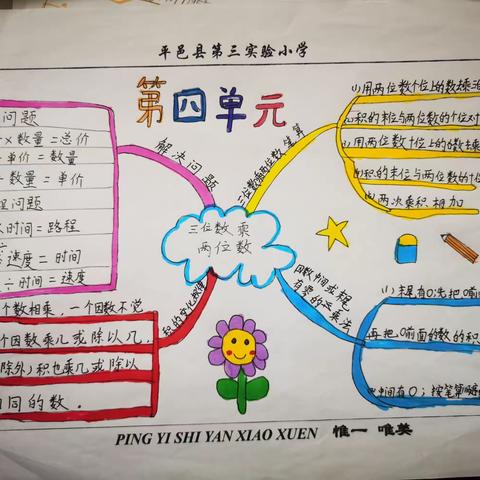 平邑县第三实验小学
第四单元
问题
×数量=总价
单价=数量
数量=单价
问题
时间=路程
速度=时间
÷时间=速度
解决问题
三位数乘
两位数
三位数乘两位数笔算
(1)用两位数个位上的数乘
积的末位与两位数的个位对
(3)用两位数十位上的数乘
积的末位与两位数的十位
两次乘积相加
因数中间或末尾
有零的乘法
(1)末尾有0:先把0前
再把0前面的数的积
中间有0;按笔算
积的变化规律
个数相乘,一个因数不
个因数乘几或除以几,
除外)积也乘几或除以
同的数.
PING YI SHI YAN XIAO XUEN 惟一 唯美